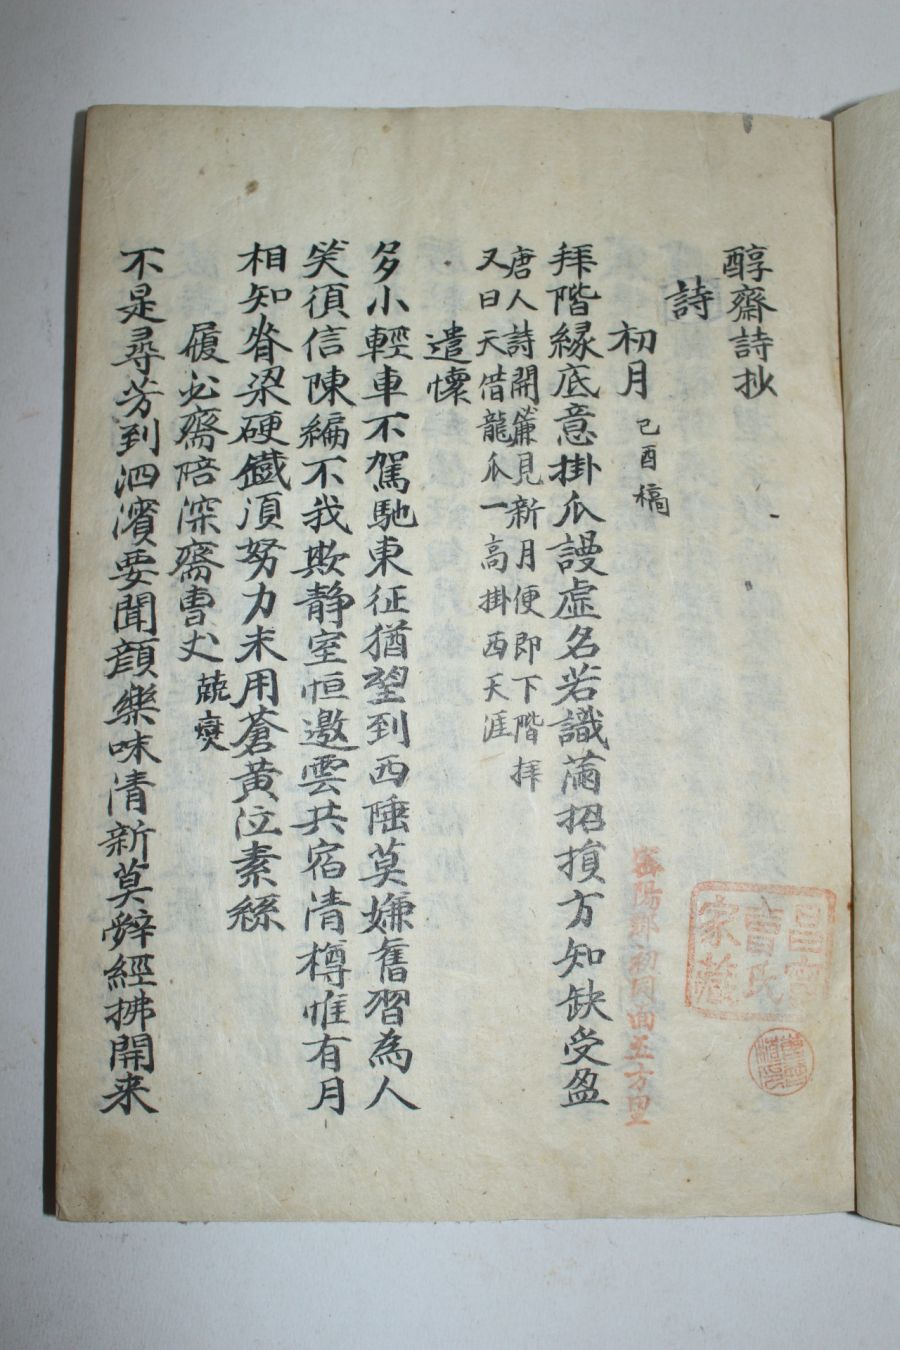 醇齋詩抄
詩
初月 己酉稿
拜階緣底意掛瓜謾虛名若識滿招損方知缺受盈
唐人詩開簾見新月便即下階拜
又曰天借龍瓜一高掛西天涯
遣懷
多小輕車不駕馳東征猶望到西陲莫嫌舊習為人
笑須信陳編不我欺靜室恒邀雲共宿清樽惟有月
相知脊梁硬鐵須努力未用蒼黃泣素絲
履必齋陪深齋曺丈 兢燮
不是尋芳到泗濱要聞顔樂味清新莫辭經拂開来
昌寧
曺氏
家藏
密陽郡初同面五方里